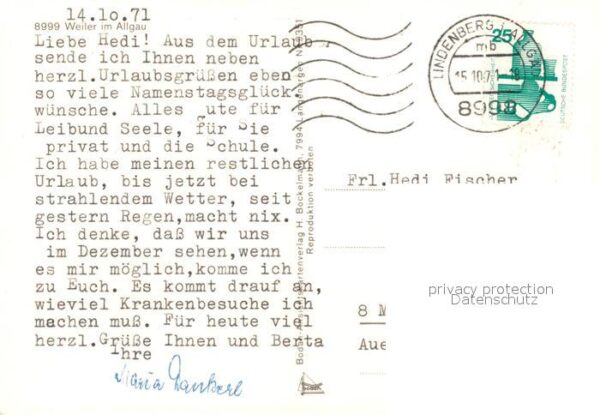 14.10.71
8999 Weiler im Allgäu
Liebe Hedi! Aus dem Urlaub
sende ich Ihnen neben
herzl.Urlaubsgrüßen eben
so viele Namenstagsglück
wünsche. Alles ute für
Leibund Seele, für Sie
privat und die Schule.
Ich habe meinen restlichen
Urlaub, bis jetzt bei
strahlendem Wetter, seit
gestern Regen,macht nix.
Ich denke, daß wir uns
im Dezember sehen,wenn
es mir möglich,komme ich
zu Euch. Es kommt drauf an,
wieviel Krankenbesuche ich
machen muß. Für heute viel
herzl.Grüße Ihnen und Berta
Ihre
Maria
Reproduktion verboten
LINDENBERG i. ALLGÄU
mb
15.10.71
8998
25
DEUTSCHE BUNDESPOST
Frl.Hedi Fischer
privacy protection
Datenschutz
8 M
Aue